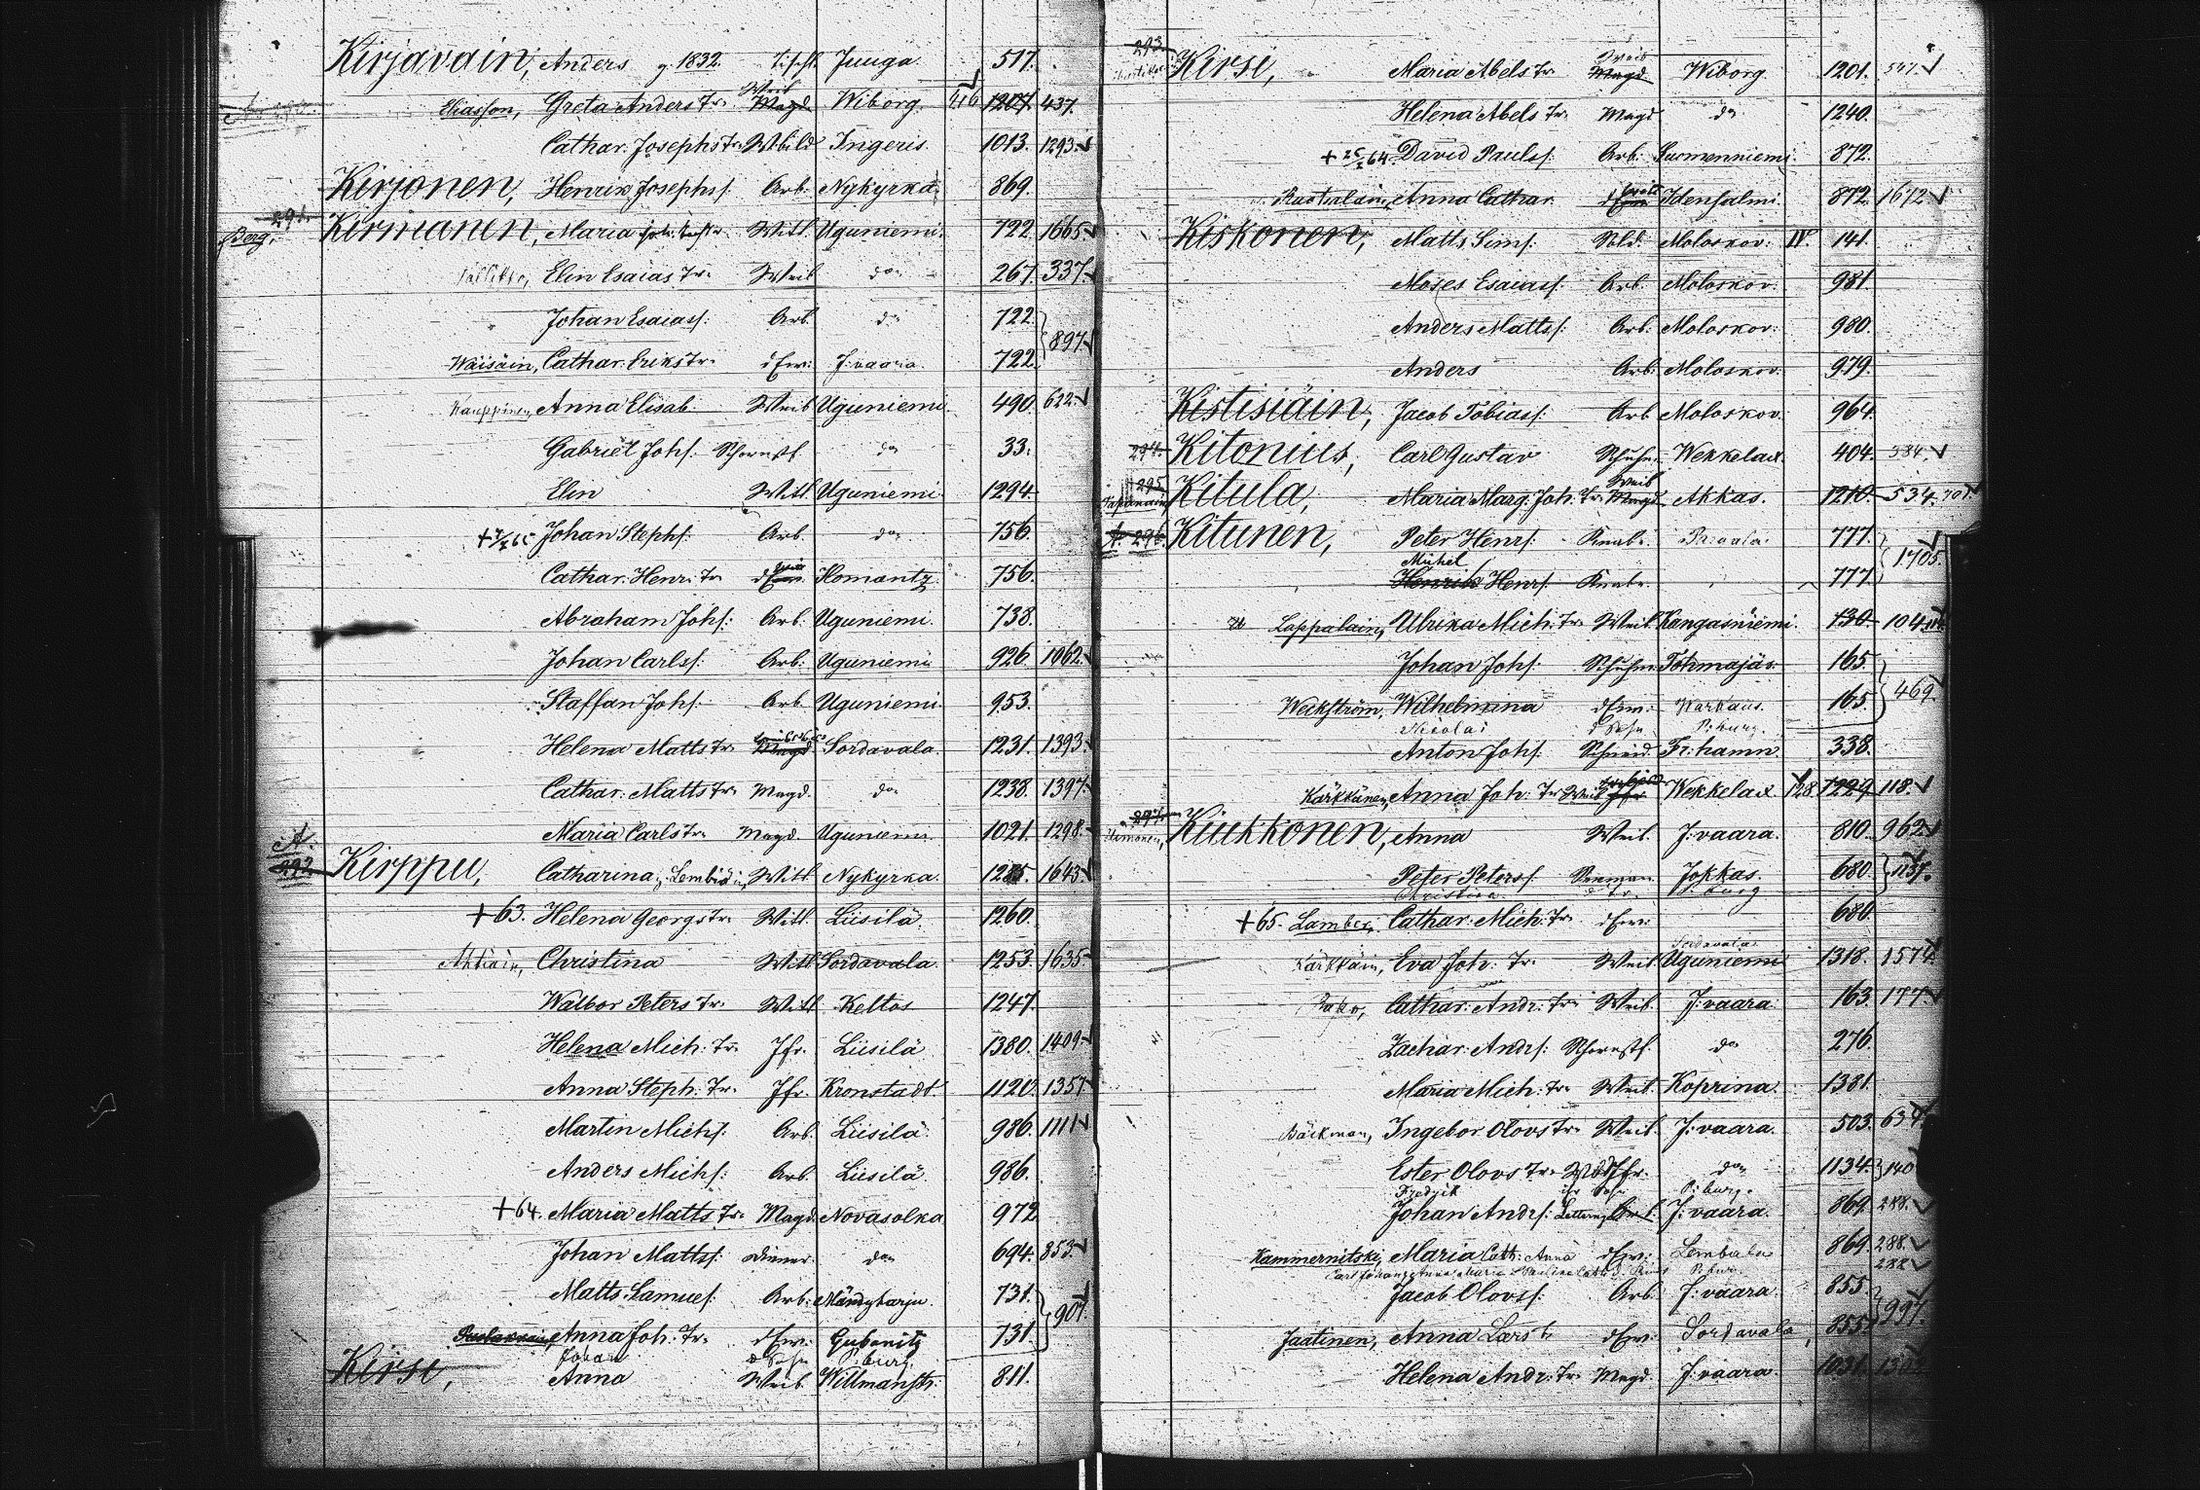 Kirjavain, Anders g. 1832. Tischl. Juuga. 517.
Weib
Eliasson, Greta Anders Tr. Magd Wiborg. 416 1207. 437.
Cathar. Josephs Tr. Ingeris. 1013. 1293.
Kirjonen, Henrik Josephs. Arb. Nykyrka. 869.
291.
Berg, Kirmanen, Maria Witt. Uguniemi. 722 1665.
Elin Esaias Tr. Weib do 267. 337.
Johan Esaiass. Arb. do 722. 897
Wäisäin, Cathar. Eriks Tr. d Frw: J:vaara 722.
Kauppinen, Anna Elisab. Weib Uguniemi 490. 622.
Gabriel Johs. Schornstf. do 33.
Elin Witt. Uguniemi 1294.
Johan Stephs. Arb. do 756.
Cathar. Henr. Tr. Ilomantz 756.
Abraham Johs. Arb. Uguniemi. 738.
Johan Carlss. Arb. Uguniemi 926. 1062.
Staffan Johs. Arb. Uguniemi. 953.
Helena Matts Tr. Magd Sordavala. 1231. 1393.
Cathar. Matts Tr. Magd. do 1238. 1397.
Maria Carls Tr. Magd. Uguniemi 1021. 1298.
A.
292. Kirppu, Catharina, Witt. Nykyrka. 1285. 1643.
+63. Helena Georgs Tr. Witt. Liisilä. 1260.
Christina Witt. Sordavala. 1253. 1635
Walbor Peters Tr. Witt. Keltos 1247.
Helena Mich. Tr. Jfr. Liisilä 1380. 1409
Anna Steph. Tr. Jfr. Kronstadt. 1120. 1357
Martin Michs. Arb. Liisilä. 986. 1111
Anders Michs. Arb. Liisilä. 986.
+64. Maria Matts Tr. Magd. Novasolka 972
Johan Mattss. Diener. do 694. 853.
Matts Samuels. Arb. 731. 907.
Anna Joh. Tr. d Frw: Gubanitz 731.
Johan d Sohn P:burg.
Kirsi, Anna Weib. Willmanstr. 811.
293. Weib
Kirsi, Maria Abels Tr. Magd Wiborg. 1201. 547.
Helena Abels Tr. Magd do 1240.
David Pauls. Arb. Suomenniemi. 872.
Anna Cathar. Idensalmi. 872. 1672
Kiskonen, Matts Sims. Sold. Moloskov. IV. 141.
Moses Esaiass. Arb. Moloskov. 981.
Anders Mattss. Arb. Moloskov. 980.
Anders Arb. Moloskov. 979.
Kistisiäin, Jacob Tobiass. Arb Moloskov. 964.
294. Kitonius, Carl Gustav Schuhm. Wekkelax. 404. 534.
295. Weib
Kitula, Maria Marg. Joh. Tr. Magd Akkas. 1210. 534.
A. 296. Kitunen, Peter Henrs. Knabe 777. 1705.
Michel
Henrik Henrs. Knabe 777.
Lappalain, Ulrika Mich. Tr. Weib. Kangasniemi. 130. 104
Johan Johs. Schuhm. Tohmajär. 165. 469.
Weckström, Wilhelmina d Frw: Warkaus. 165.
Nicolai d Sohn P:burg.
Anton Johs. Schneid. Fr:hamn. 338.
Kärkkänen, Anna Joh. Tr. Weib Wekkelax 128. 1229. 118.
297.
Kiukkonen, Anna Weib. J:vaara. 810. 962
Peter Peters. Jokkas. 680. 1137.
Christina d Tr. P:burg
+65. Cathar. Mich. Tr. d Frw: 680.
Sordavala
Kärkkäin, Eva Joh. Tr. Weib. Uguniemi 1318. 1574.
Cathar. Andr. Tr. Weib. J:vaara 163. 177.
Zachar. Andrs. Schornstf. do 276.
Maria Mich. Tr. Weib. Koprina. 1381.
Bäckman, Ingebor Olovs Tr. Weib. J:vaara. 503. 634.
Ester Olovs Tr. do 1134. 140
Fredrik ihr Sohn P:burg.
Johan Andrs. J:vaara. 869. 288.
Kammernitski, Maria Cath. Anna d Frw: Lembala 869. 288.
288
Jacob Olovss. Arb. J:vaara. 855. 997.
Jaatinen, Anna Lars Tr. d Frw: Sordavala 855.
Helena Andr. Tr. Magd. J:vaara. 1031. 1303.